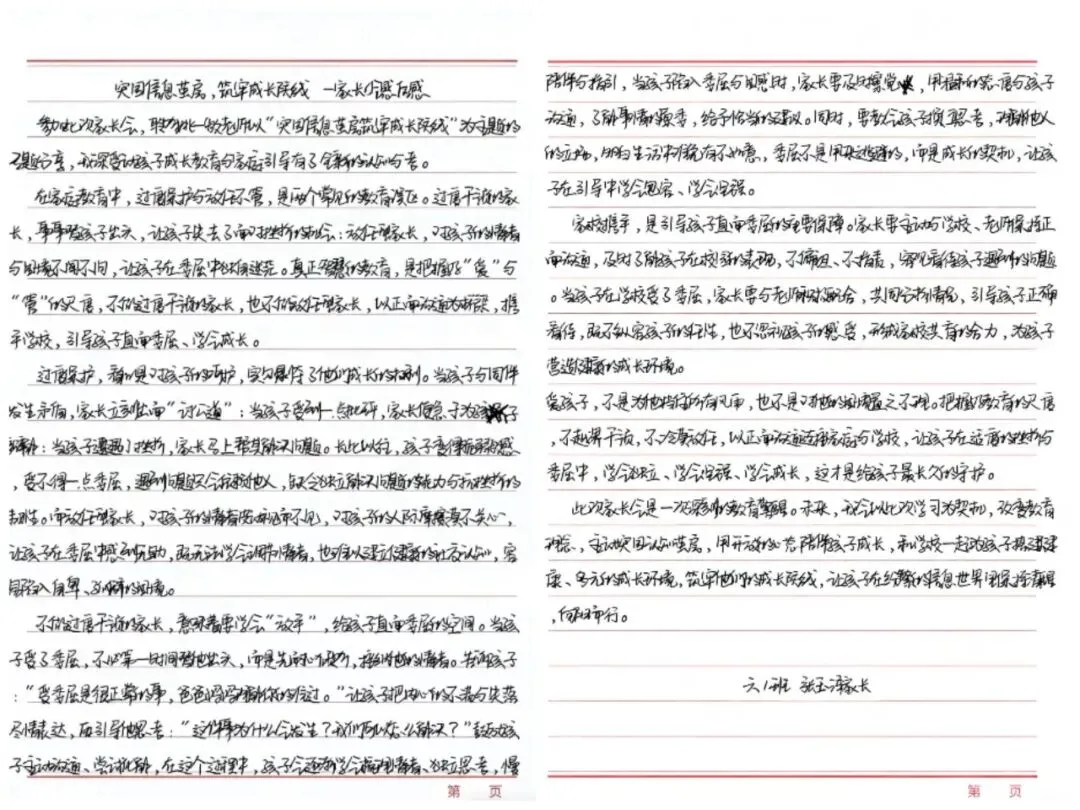 突围信息茧房，筑牢成长防线 —家长会感后感
参加此次家长会，聆听张老师以“突围信息茧房筑牢成长防线”为主题的
专题分享，我深受对孩子成长教育与家庭引导有了全新的认知与思考。
在家庭教育中，过度保护与放任不管，是两个常见的教育误区。过度干预的家
长，事事替孩子出头，让孩子失去了面对挫折的机会；放任型家长，对孩子的情绪
与困境不闻不问，让孩子在委屈中独自迷茫。真正智慧的教育，是把握好“爱”与
“管”的尺度，不做过度干预的家长，也不做放任型家长，以正面沟通为桥梁，携
手学校，引导孩子直面委屈、学会成长。
过度保护，看似是对孩子的呵护，实则剥夺了他们成长的权利。当孩子与同伴
发生矛盾，家长立刻出面“讨公道”；当孩子受到一点批评，家长便急于为孩子
辩解；当孩子遭遇了挫折，家长马上帮其解决问题。长此以往，孩子变得脆弱敏感
，受不得一点委屈，遇到问题只会依赖他人，缺乏独立解决问题的能力与抗挫折的
韧性。而放任型家长，对孩子的情绪变化视而不见，对孩子的人际摩擦漠不关心，
让孩子在委屈中感到无助，既无法学会调节情绪，也难以建立健康的社交认知，容
易陷入自卑、孤僻的困境。
不做过度干预的家长，意味着要学会“放手”，给孩子直面委屈的空间。当孩
子受了委屈，不必第一时间替他出头，而是先耐心倾听，接纳他的情绪。告诉孩子
：“受委屈是很正常的事，爸爸妈妈理解你的难过。”让孩子把内心的不满与失落
尽情表达，再引导他思考：“这件事为什么会发生？我们可以怎么解决？”鼓励孩
子主动沟通、尝试化解，在这个过程中，孩子会逐渐学会管理情绪、独立思考，慢
陪伴与指引，当孩子陷入委屈与困惑时，家长要及时察觉，用温和的态度与孩子
沟通，了解事情的原委，给予恰当的建议。同时，要教会孩子换位思考，理解他人
的立场，明白生活中难免有不如意，委屈不是用来逃避的，而是成长的契机，让孩
子在引导中学会包容、学会坚强。
家校携手，是引导孩子直面委屈的重要保障。家长要主动与学校、老师保持正
面沟通，及时了解孩子在校的表现，不偏袒、不指责，客观看待孩子遇到的问题
。当孩子在学校受了委屈，家长要与老师积极配合，共同分析情况，引导孩子正确
看待，既不纵容孩子的任性，也不忽视孩子的感受，形成家校共育的合力，为孩子
营造健康的成长环境。
爱孩子，不是为他挡掉所有风雨，也不是对他的困境置之不理。把握好教育的尺度
，不越界干预，不冷漠放任，以正面沟通连接家庭与学校，让孩子在适度的挫折与
委屈中，学会独立、学会坚强、学会成长，这才是给孩子最长久的守护。
此次家长会是一次深刻的教育警醒。未来，我会以此次学习为契机，改变教育
理念，主动突围认知茧房，用开放的心态陪伴孩子成长，和学校一起为孩子搭建健
康、多元的成长环境，筑牢他们的成长防线，让孩子在纷繁的信息世界里保持清醒
，向阳前行。
六1班 家长
第 页
第 页